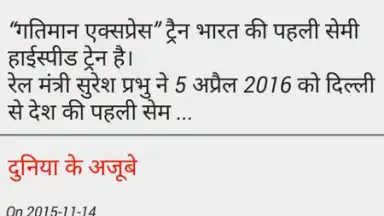 “गतिमान एक्सप्रेस” ट्रैन भारत की पहली सेमी
हाईस्पीड ट्रेन है।
रेल मंत्री सुरेश प्रभु ने 5 अप्रैल 2016 को दिल्ली
से देश की पहली सेम ...
दुनिया के अजूबे
On 2015-11-14